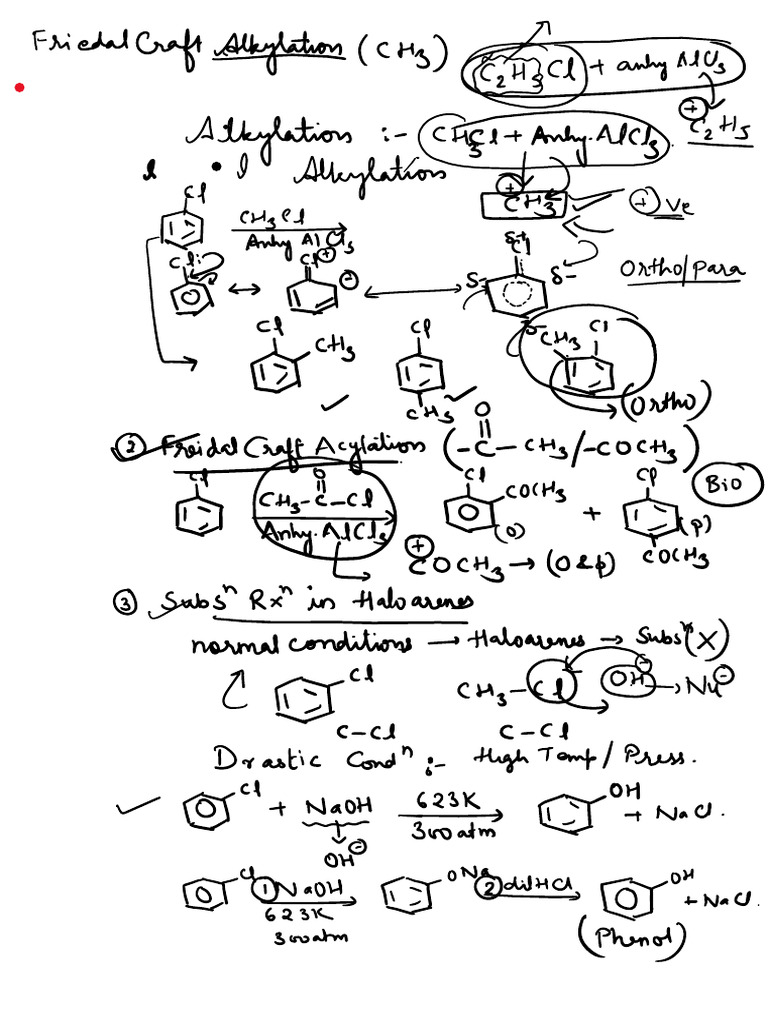 Friedal Craft Alkylation (CH3)
C2H5Cl + anhy AlCl3
⊕
C2H5
Alkylation :- CH3Cl + Anhy. AlCl3
Alkylation
⊕
CH3
⊕ve
Cl
CH3Cl
Anhy AlCl3
Cl: ↔ Cl⊕ ⊖ ↔ δ+ Cl δ- δ- δ-
Ortho/para
Cl CH3
Cl CH3
CH3 Cl
(Ortho)
② Freidal Craft Acylation (-C-CH3/-COCH3)
O
Cl
O
CH3-C-Cl
Anhy. AlCl3
Cl COCH3 (o) + Cl (p) COCH3
BiO
⊕
COCH3 → (O&p)
③ Subsn Rxn in Haloarenes
normal conditions → Haloarenes → Subsn (X)
Cl
CH3-Cl OH⊖ → Nu⊖
C-Cl C-Cl
Drastic Condn :- High Temp/Press.
Cl + NaOH 623K 300atm OH + NaCl.
OH⊖
Cl ① NaOH 623K 300atm ONa ② dil HCl OH + NaCl.
(Phenol)